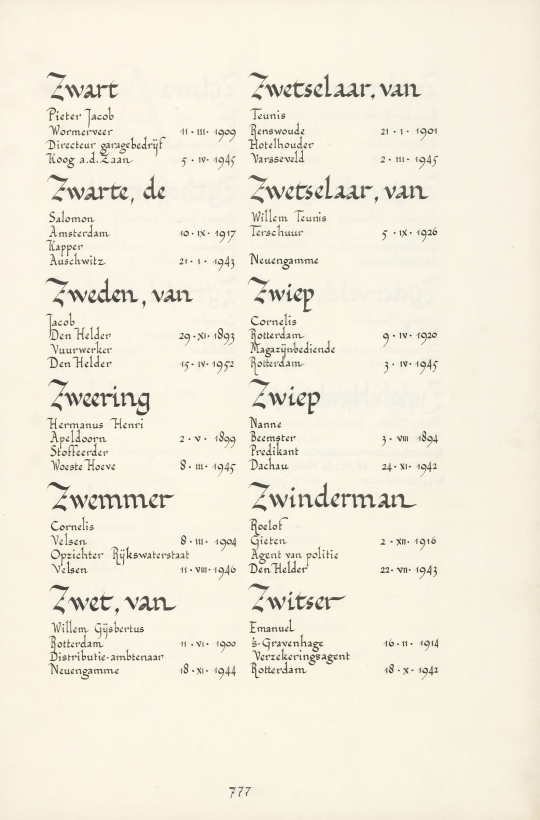 Zwart
Pieter Jacob
Wormerveer 11 · III · 1909
Directeur garagebedrijf
Koog a.d. Zaan 5 · IV · 1945
Zwarte, de
Salomon
Amsterdam 10 · IX · 1917
Kapper
Auschwitz 21 · I · 1943
Zweden, van
Jacob
Den Helder 29 · XI · 1893
Vuurwerker
Den Helder 15 · IV · 1952
Zweering
Hermanus Henri
Apeldoorn 2 · V · 1899
Stoffeerder
Woeste Hoeve 8 · III · 1945
Zwemmer
Cornelis
Velsen 8 · III · 1904
Opzichter Rijkswaterstaat
Velsen 11 · VIII · 1946
Zwet, van
Willem Gijsbertus
Rotterdam 11 · VI · 1900
Distributie-ambtenaar
Neuengamme 18 · XI · 1944
Zwetselaar, van
Teunis
Renswoude 21 · I · 1901
Hotelhouder
Varsseveld 2 · III · 1945
Zwetselaar, van
Willem Teunis
Terschuur 5 · IX · 1926
Neuengamme
Zwiep
Cornelis
Rotterdam 9 · IV · 1920
Magazijnbediende
Rotterdam 3 · IV · 1945
Zwiep
Nanne
Beemster 3 · VIII · 1894
Predikant
Dachau 24 · XI · 1942
Zwinderman
Roelof
Gieten 2 · XII · 1916
Agent van politie
Den Helder 22 · VII · 1943
Zwitser
Emanuel
's-Gravenhage 16 · II · 1914
Verzekeringsagent
Rotterdam 18 · X · 1942
777